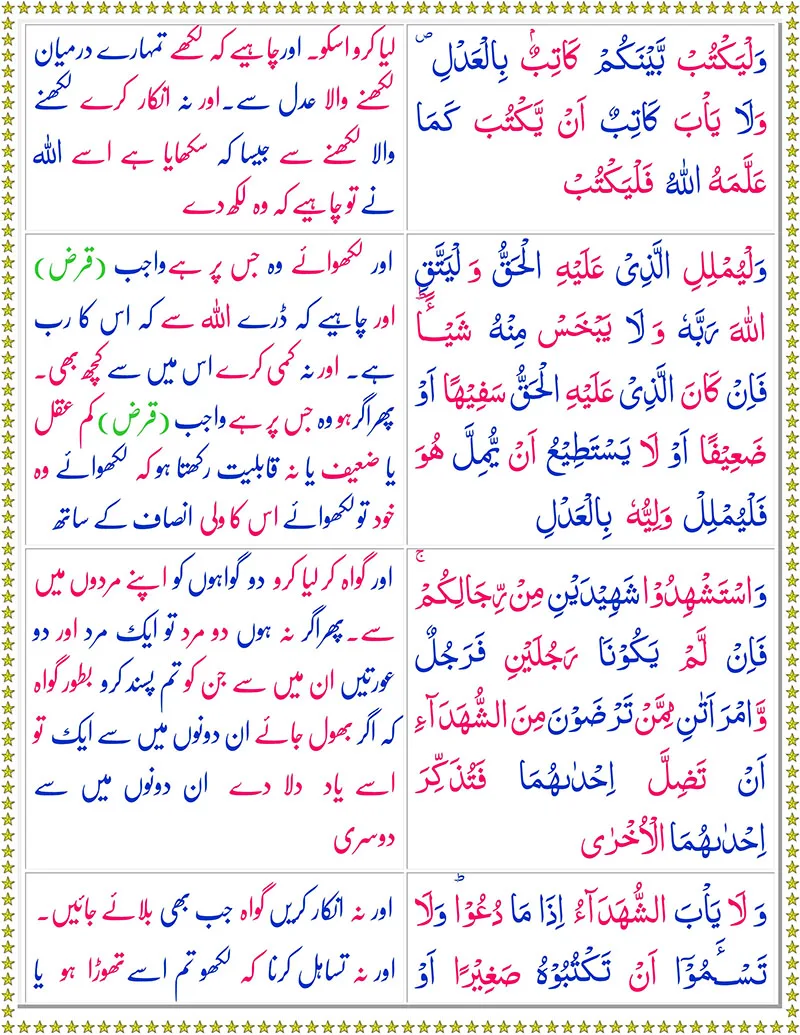 وَلْيَكْتُبْ بَّيْنَكُمْ كَاتِبٌۢ بِالْعَدْلِ ۪
وَلَا يَاْبَ كَاتِبٌ اَنْ يَّكْتُبَ كَمَا
عَلَّمَهُ اللهُ فَلْيَكْتُبْ
لیا کرو اسکو۔ اورچاہیے کہ لکھے تمہارے درمیان
لکھنے والا عدل سے۔اور نہ انکار کرے لکھنے
والا لکھنے سے جیسا کہ سکھایا ہے اسے اللہ
نے تو چاہیے کہ وہ لکھ دے
وَلْيُمْلِلِ الَّذِىْ عَلَيْهِ الْحَقُّ وَ لْيَتَّقِ
اللهَ رَبَّهٗ وَ لَا يَبْخَسْ مِنْهُ شَيْـــًٔا ؕ
فَاِنْ كَانَ الَّذِىْ عَلَيْهِ الْحَقُّ سَفِيْهًا اَوْ
ضَعِيْفًا اَوْ لَا يَسْتَطِيْعُ اَنْ يُّمِلَّ هُوَ
فَلْيُمْلِلْ وَلِيُّهٗ بِالْعَدْلِ
اور لکھوائے وہ جس پر ہے واجب (قرض)
اور چاہیے کہ ڈرے اللہ سے کہ اس کا رب
ہے۔ اور نہ کمی کرے اس میں سے کچھ بھی۔
پھراگرہو وہ جس پر ہے واجب (قرض) کم عقل
یا ضعیف یا نہ قابلیت رکھتا ہو کہ لکھوائے وہ
خود تو لکھوائے اس کا ولی انصاف کے ساتھ
وَاسْتَشْهِدُوْا شَهِيْدَيْنِ مِنْ رِّجَالِكُمْ ۚ
فَاِنْ لَّمْ يَكُوْنَا رَجُلَيْنِ فَرَجُلٌ
وَّامْرَاَتٰنِ مِمَّنْ تَرْضَوْنَ مِنَ الشُّهَدَآءِ
اَنْ تَضِلَّ اِحْدٰٮهُمَا فَتُذَكِّرَ
اِحْدٰٮهُمَا الْاُخْرٰى
اور گواہ کر لیا کرو دو گواہوں کو اپنے مردوں میں
سے۔پھراگر نہ ہوں دو مرد تو ایک مرد اور دو
عورتیں ان میں سے جن کو تم پسند کرو بطور گواہ
کہ اگر بھول جائے ان دونوں میں سے ایک تو
اسے یاد دلا دے ان دونوں میں سے
دوسری
وَ لَا يَاْبَ الشُّهَدَآءُ اِذَا مَا دُعُوْا ؕ وَلَا
تَسْــَٔمُوْٓا اَنْ تَكْتُبُوْهُ صَغِيْرًا اَوْ
اور نہ انکار کریں گواہ جب بھی بلائے جائیں۔
اور نہ تساہل کرنا کہ لکھو تم اسے تھوڑا ہو یا